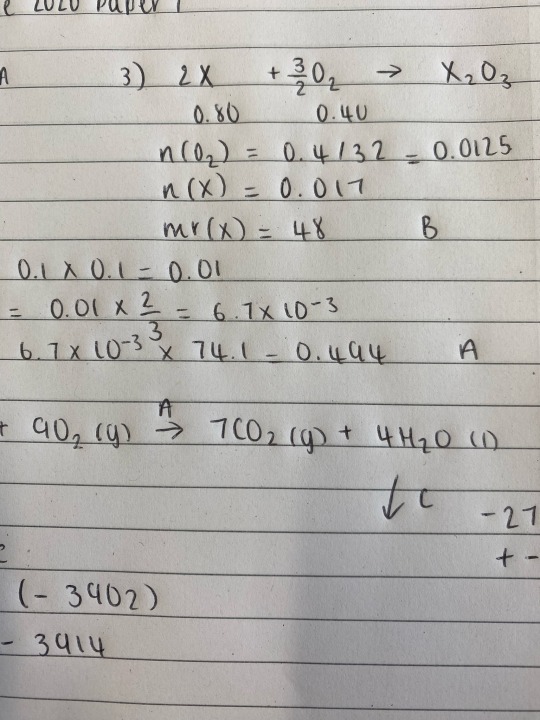 e 2020 paper 1
A 3) 2X + 3/2 O₂ → X₂O₃
0.80 0.40
n(O₂) = 0.4/32 = 0.0125
n(X) = 0.017
mr(X) = 48 B
0.1 × 0.1 = 0.01
= 0.01 × 2/3 = 6.7 × 10⁻³
6.7 × 10⁻³ × 74.1 = 0.494 A
+ 9O₂ (g) A → 7CO₂ (g) + 4H₂O (l)
↓ C -27
+ -
(- 3902)
- 3914